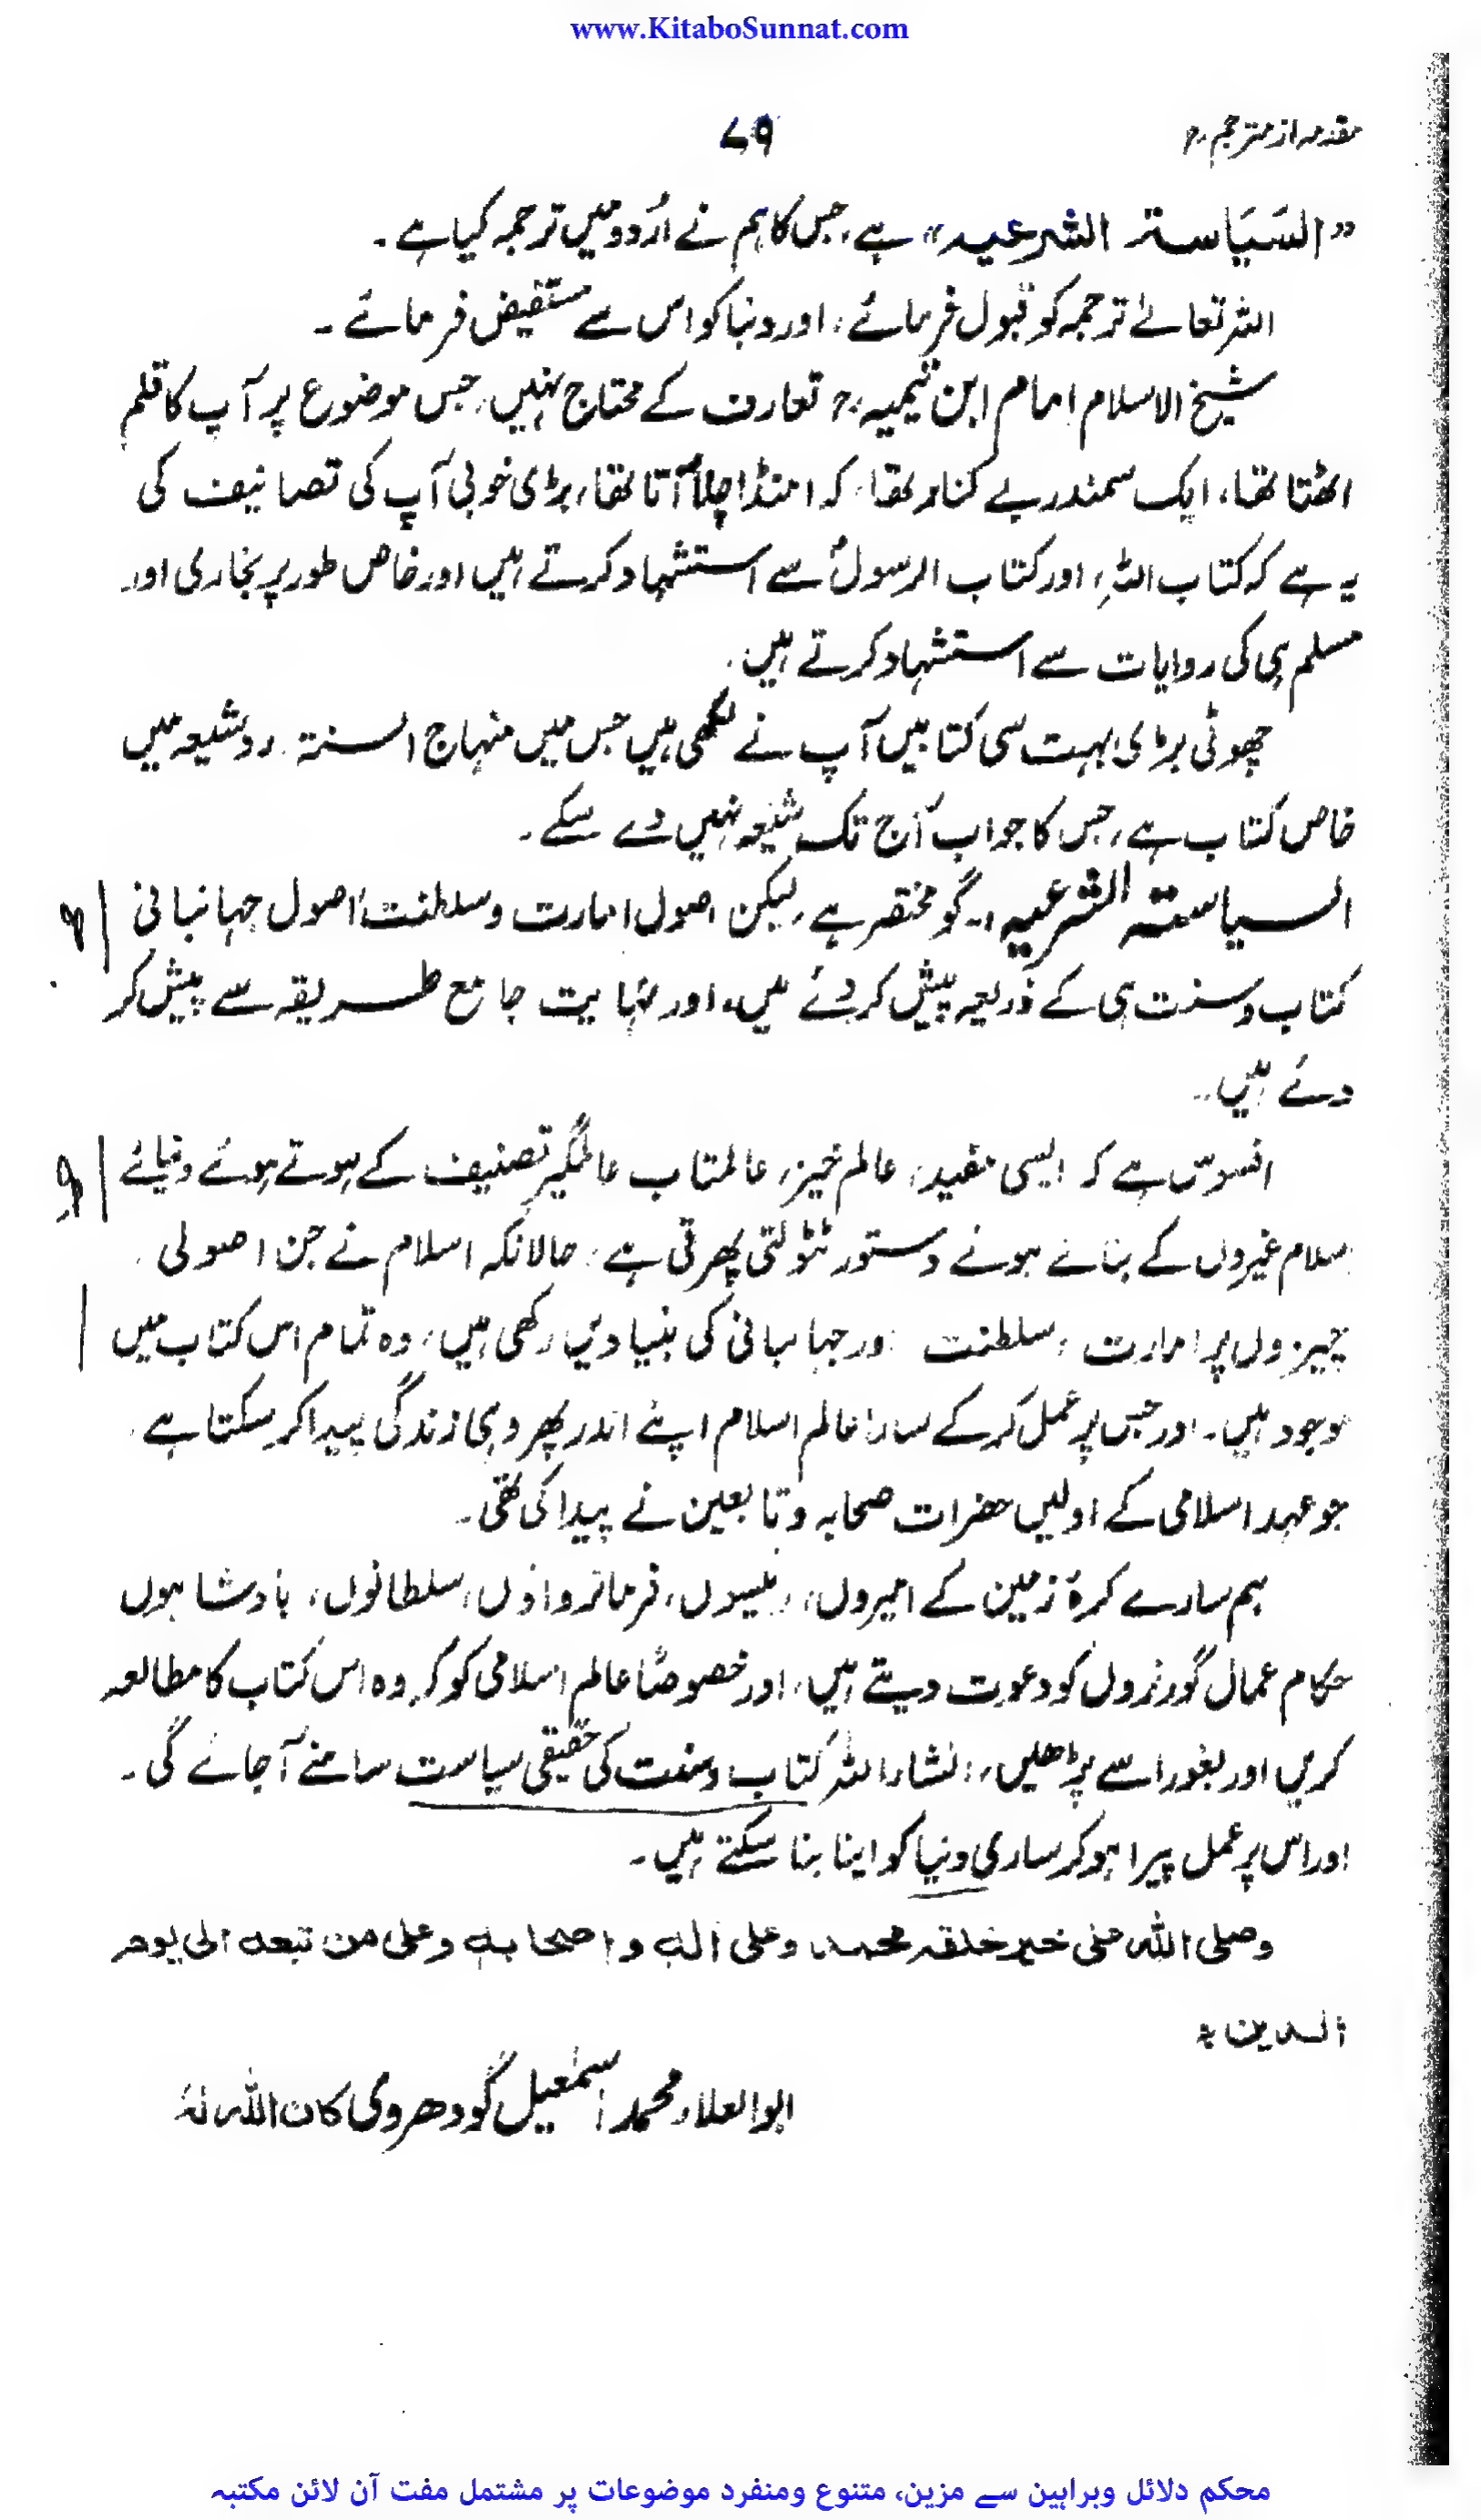 www.KitaboSunnat.com
مقدمہ از مترجمؒ
۷۹
"السَیَاستہ الشرعیہ" ہے، جس کا ہم نے اُردو میں ترجمہ کیا ہے۔
اللہ تعالےٰ ترجمہ کو قبول فرمائے، اور دنیا کو اس سے مستفیض فرمائے۔
شیخ الاسلام امام ابن تیمیہؒ تعارف کے محتاج نہیں، جس موضوع پر آپ کا قلم
اٹھتا تھا، ایک سمندر بے کنار تھا، کہ امنڈا چلا آتا تھا، بڑی خوبی آپ کی تصانیف کی
یہ ہے کہ کتاب اللہ، اور کتاب الرسولؐ سے استشہاد کرتے ہیں اور خاص طور پر بخاری اور
مسلم ہی کی روایات سے استشہاد کرتے ہیں۔
چھوٹی بڑی بہت سی کتابیں آپ نے لکھی ہیں جس میں منہاج السنۃ، رد شیعہ میں
خاص کتاب ہے، جس کا جواب آج تک شیعہ نہیں دے سکے۔
السیاستہ الشرعیہ، گو مختصر ہے، لیکن اصول امارت و سلطنت اصول جہانبانی
کتاب و سنت ہی کے ذریعہ پیش کر دئے ہیں، اور نہایت جامع طریقہ سے پیش کر
دئے ہیں۔
افسوس ہے کہ ایسی مفید، عالم خیز، عالمتاب عالمگیر تصنیف کے ہوتے ہوئے دنیائے
اسلام غیروں کے بنائے ہوئے دستور ٹٹولتی پھرتی ہے، حالانکہ اسلام نے جن اصولی
چیزوں پر امارت، سلطنت اور جہانبانی کی بنیادیں رکھی ہیں، وہ تمام اس کتاب میں
موجود ہیں۔ اور جس پر عمل کر کے سارا عالم اسلام اپنے اندر پھر وہی زندگی پیدا کر سکتا ہے
جو عہد اسلامی کے اولیں حضرات صحابہ و تابعین نے پیدا کی تھی۔
ہم سارے کرۂ زمین کے امیروں، رئیسوں، فرمانرواؤں، سلطانوں، بادشاہوں
حکام عمال گورنروں کو دعوت دیتے ہیں، اور خصوصًا عالم اسلامی کو کہ وہ اس کتاب کا مطالعہ
کریں اور بغور اسے پڑھیں، انشاء اللہ کتاب و سنت کی حقیقی سیاست سامنے آجائے گی۔
اور اس پر عمل پیرا ہو کر ساری دنیا کو اپنا بنا سکتے ہیں۔
وصلی اللہ علی خیر خلقہ محمد وعلی الہ واصحابہ وعلی من تبعہ الی یوم
الدین ؛
ابو العلاء محمد اسمٰعیل گودھروی کان اللہ لہٗ
محکم دلائل وبراہین سے مزین، متنوع ومنفرد موضوعات پر مشتمل مفت آن لائن مکتبہ